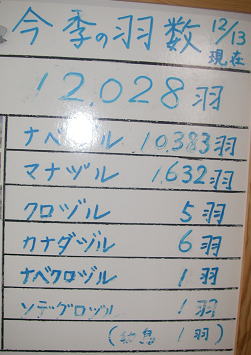 今季の羽数 12/13 現在
12,028羽
ナベヅル 10,383羽
マナヅル 1,632羽
クロヅル 5羽
カナダヅル 6羽
ナベクロヅル 1羽
ソデグロヅル 1羽
( 1羽)